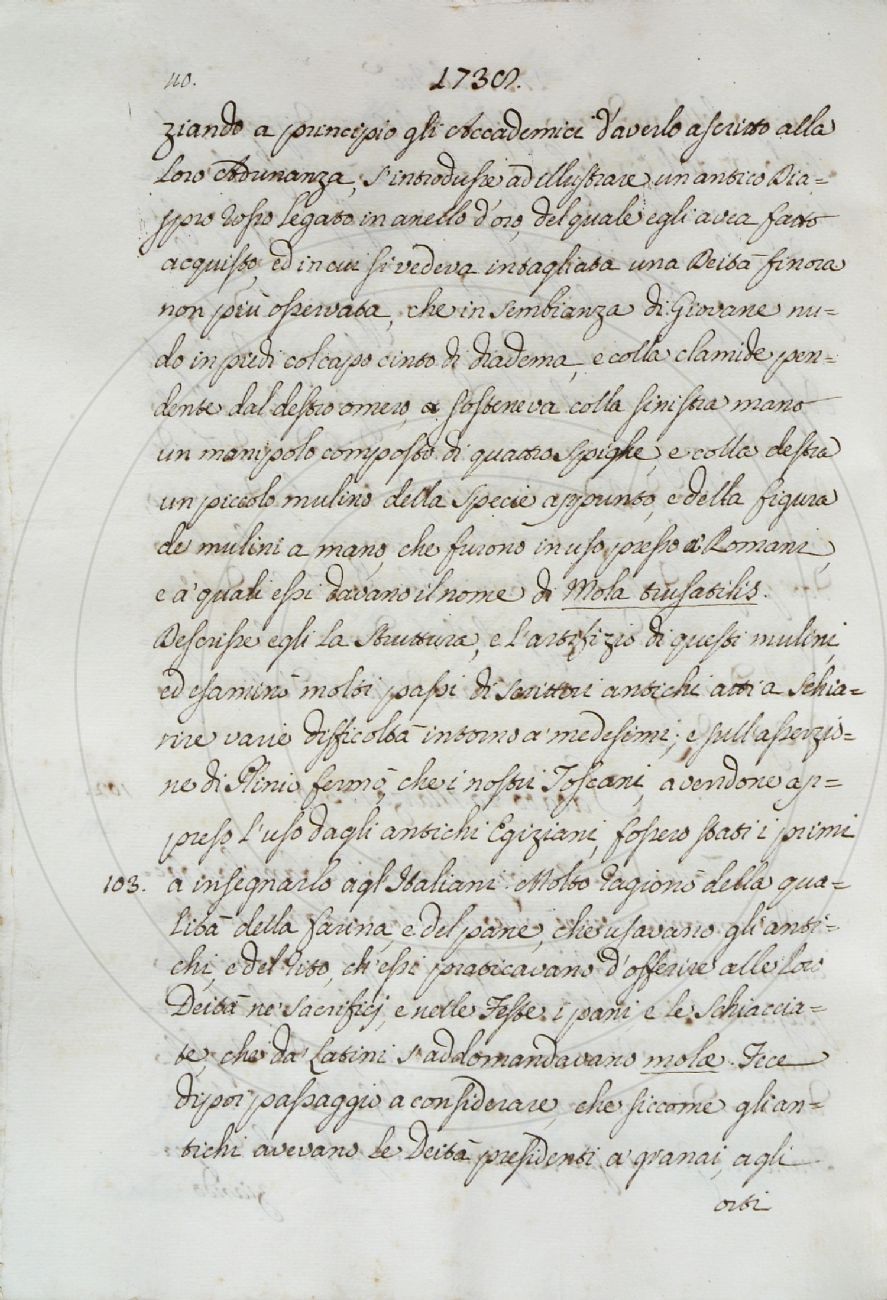 110. 1738.
ziando a principio gli Accademici d'averlo ascritto alla
loro Adunanza, s'introdusse ad illustrare un antico Dia=
spro rosso legato in anello d'oro, del quale egli avea fatto
acquisto, ed in cui si vedeva intagliata una Deità finora
non più osservata, che in sembianza di Giovane nu=
do in piedi col capo cinto di diadema, e colla clamide pen=
dente dal destro omero, sosteneva colla sinistra mano
un manipolo composto di quattro spighe, e colla destra
un piccolo mulino della specie appunto, e della figura
de mulini a mano, che furono in uso presso i Romani,
e a' quali essi davano il nome di Mola trusatilis.
Descrisse egli la struttura, e l'artifizio di questi mulini,
ed esaminò molti passi di scrittori antichi atti a schia=
rire varie difficoltà intorno a' medesimi; e sull'asserzio=
ne di Plinio fermò, che i nostri Toscani, avendone ap=
preso l'uso dagli antichi Egiziani, fossero stati i primi
103. a insegnarlo agl'Italiani. Molto ragionò della qua=
lità della farina, e del pane, che usavano gli anti=
chi, e del rito, ch'essi praticavano d'offerire alle loro
Deità ne' sacrifici, e nelle Feste i pani e le schiaccia=
te, che da' Latini s'addomandavano molæ. Fece
dipoi passaggio a considerare, che siccome gli an=
tichi avevano le Deità presidenti a' granai, agli
orti